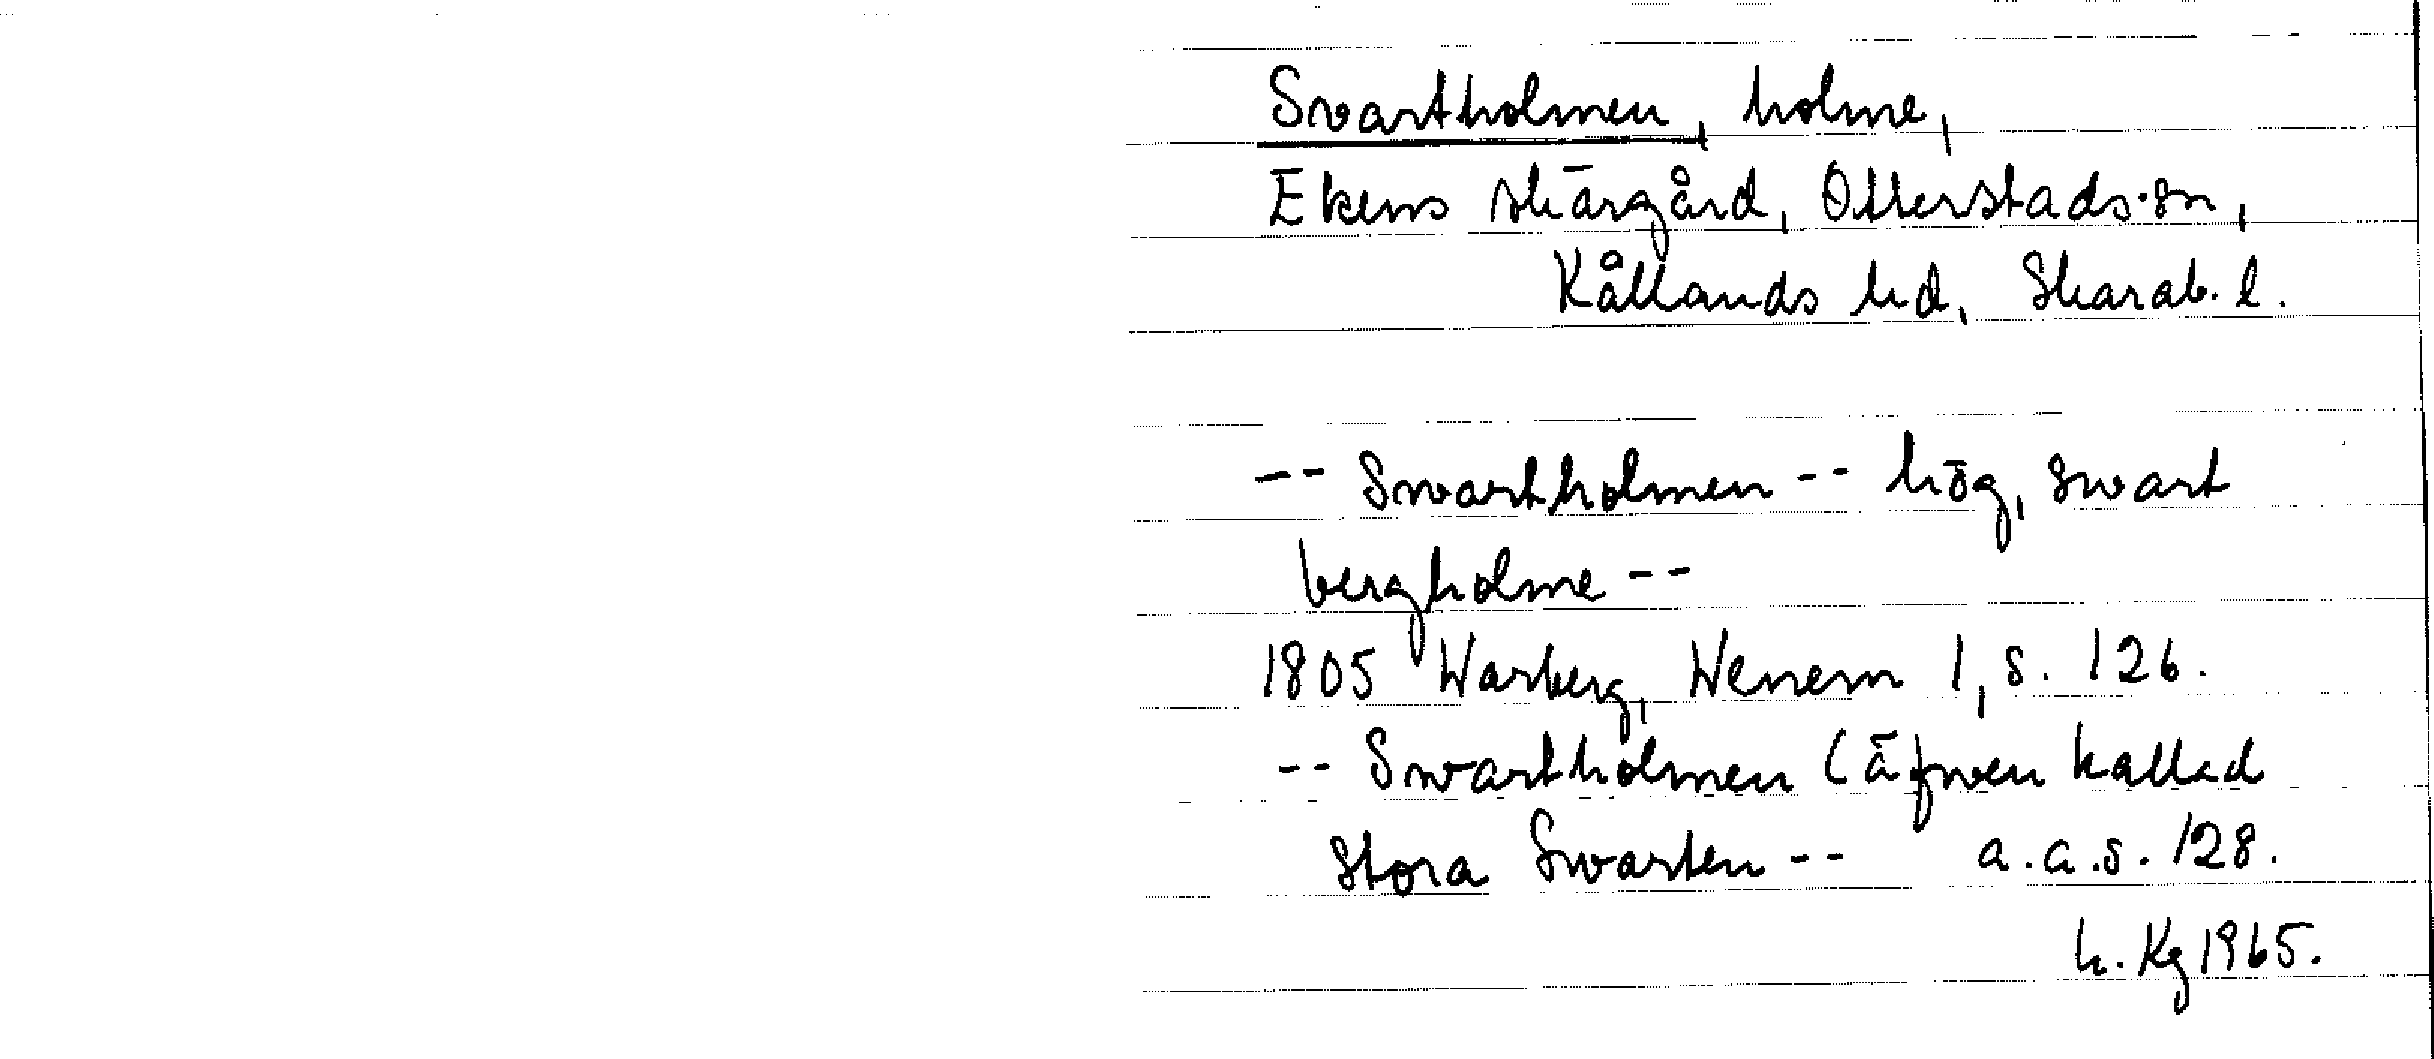 Svartholmen, holme,
Ekens skärgård, Otterstads sn,
Kållands hd, Skarab. l.
-- Swartholmen -- hög, swart
bergholme --
1805 Warberg, Wenern 1, s. 126.
-- Swartholmen (äfwen kallad
Stora Swarten -- a.a.s. 128.
h. Kg 1965.